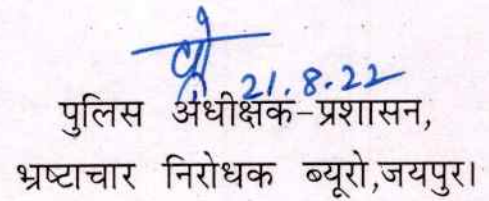 21.8.22
पुलिस अधीक्षक-प्रशासन,
भ्रष्टाचार निरोधक ब्यूरो,जयपुर।